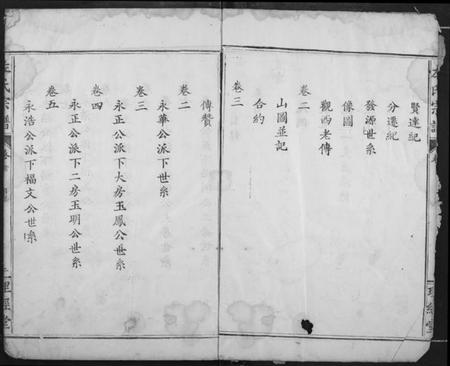 賢達紀
分遷紀
發源世系
像圖
觀西老傳
卷二
山圖並記
合約
卷三
傳贊
卷二
永華公派下世系
卷三
永正公派下大房玉鳳公世系
卷四
永正公派下二房玉明公世系
卷五
永浩公派下福文公世系
氏宗譜
理經堂